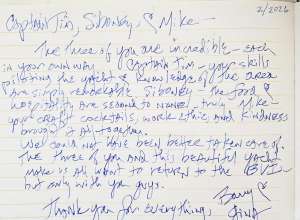 2/2026
Captain Jim, Sibonley, & Mike -
The three of you are incredible - each
in your own way. Captain Jim - your skills
piloting the yacht & knowledge of the area
are simply remarkable. Sibonley - the food &
hospitality are second to none! truly. Mike -
your craft cocktails, work ethic, and kindness
brought it all together.
We could not have been better taken care of.
The three of you and this beautiful yacht
make us all want to return to the BVI -
but only with you guys.
Thank you for everything,